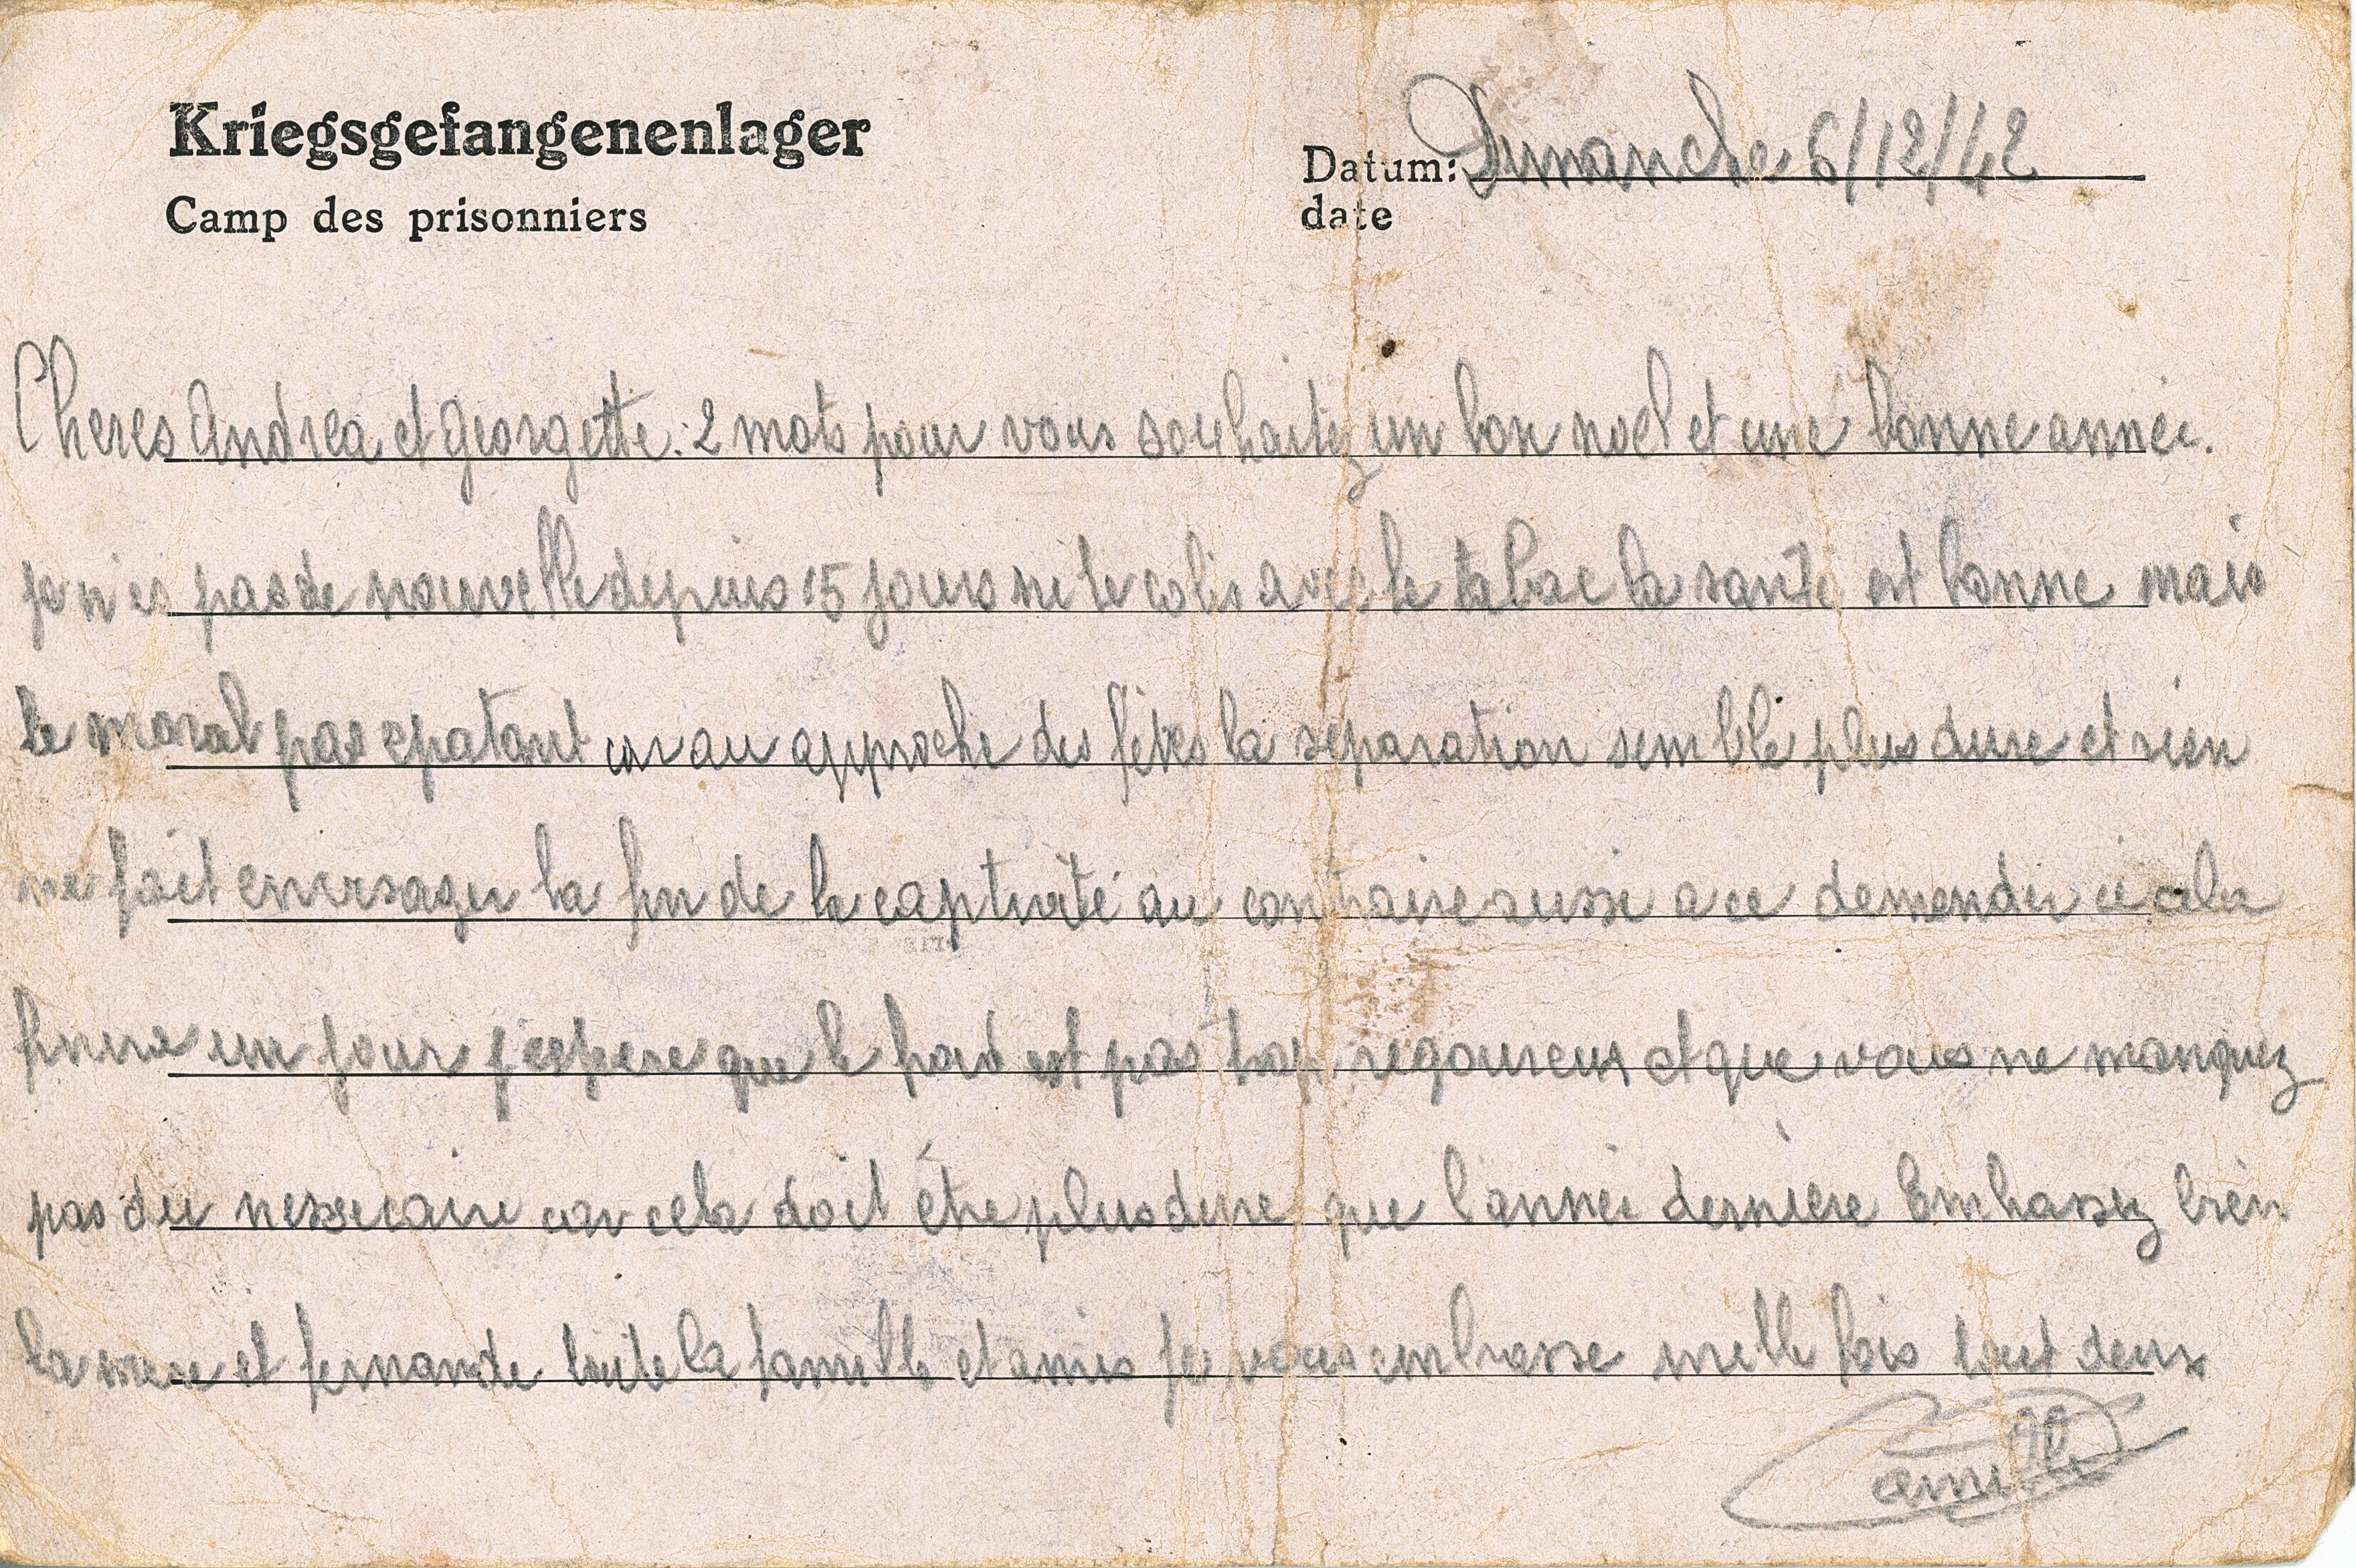 Kriegsgefangenenlager
Camp des prisonniers
Datum: Dimanche 6/12/42
date
Cheres Andrea et Georgette. 2 mots pour vous souhaitez un bon noel et une bonne année.
je n'es pas de nouvelle depuis 15 jours ni le colis avec le tabac la santé est bonne mais
le moral pas epatant car au approche des fêtes la séparation semble plus dure et rien
ne fait envisager la fin de la captivité au contraire aussi a ce demender ci cela
finira un jour j'espere que le froid est pas trop regoureux et que vous ne manquez
pas du nessecaire car cela doit être plus dure que l'année dernière Embrassez bien
la mere et fernande toute la famille et amies je vous embrasse mille fois tout deux